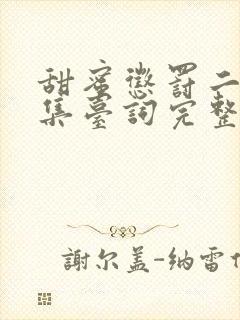 甜蜜懲罰二
集臺詞完整
謝尔盖-纳雷